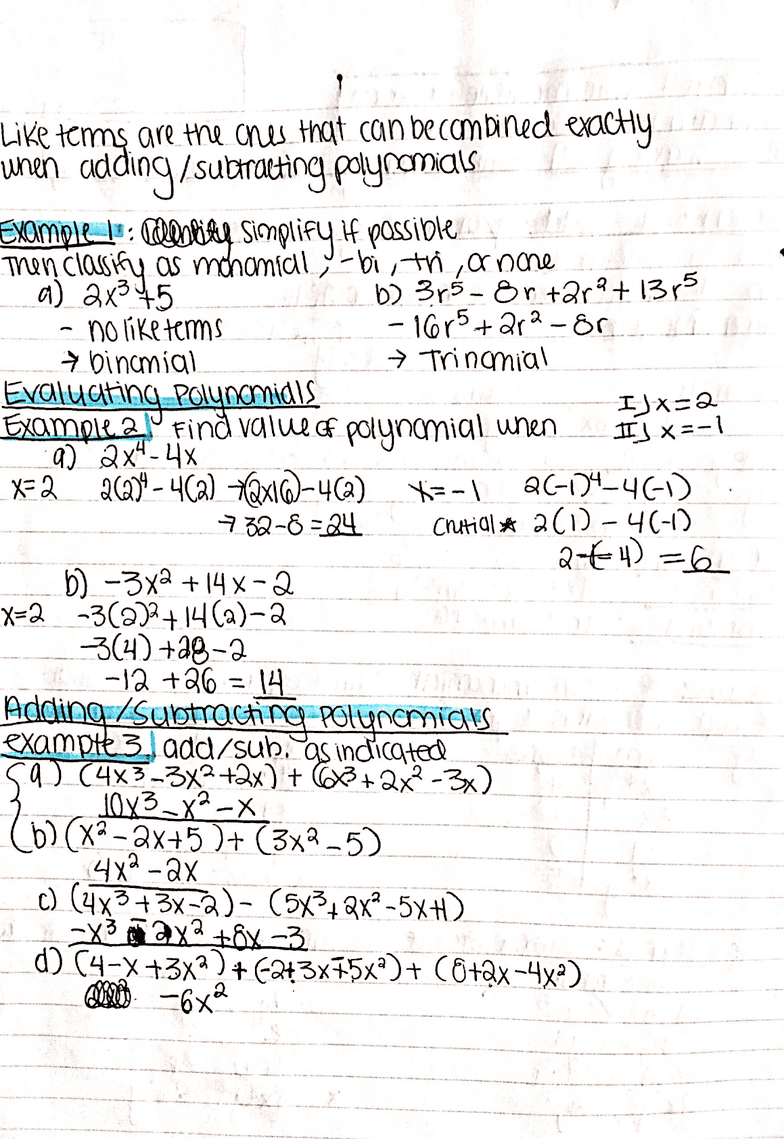 Like terms are the ones that can be combined exactly
when adding/subtracting polynomials
Example 1: Identify simplify if possible
Then classify as monomial, -bi, -tri, or none
a) 2x³+5
b) 3r⁵ - 8r + 2r² + 13r⁵
- no like terms
- 16r⁵ + 2r² - 8r
→ binomial
→ Trinomial
Evaluating Polynomials
I) x=2
Example 2) Find value of polynomial when
II) x=-1
a) 2x⁴-4x
x=2 2(2)⁴-4(2) →(2x16)-4(2)
x=-1 2(-1)⁴-4(-1)
→ 32-8=24
crutial★ 2(1) - 4(-1)
2-(-4) = 6
b) -3x² + 14x - 2
x=2 -3(2)²+14(2)-2
-3(4)+28-2
-12 +26 = 14
Adding/Subtracting Polynomials
example 3) add/sub. as indicated
a) (4x³-3x²+2x) + (6x³+2x²-3x)
10x³-x²-x
b) (x²-2x+5) + (3x²-5)
4x²-2x
c) (4x³+3x-2) - (5x³+2x²-5x+1)
-x³ - 2x² +8x -3
d) (4-x+3x²) + (-2+3x-5x²) + (8+2x-4x²)
-6x²